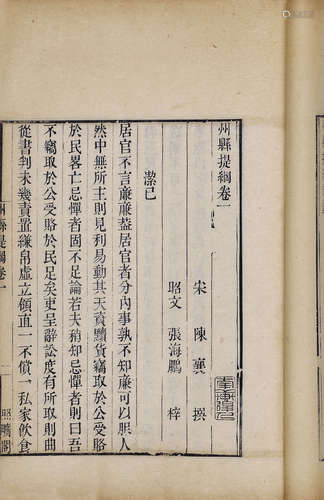 州縣提綱卷一
宋 陳襄 撰
昭文 張海鵬 梓
潔己
居官不言廉廉蓋居官者分內事孰不知廉可以服人
然中無所主則見利易動其天黷貨竊取於公受賂
於民畧亡忌憚者固不足論若夫稍知忌憚者則曰吾
不竊取於公受賂於民足矣吏呈辭訟度有所取則曲
從書判未幾責置縑帛虛立領直一不償一私家飲食
州縣提綱卷一
照曠閣